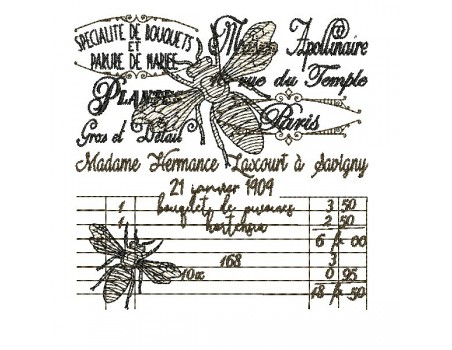 SPECIALITE DE BOUQUETS
ET
PARURE DE MARIEE
Maison Apollinaire
rue du Temple
PLANTES
Paris
Gros et Détail
Madame Hermance Laxcourt à Savigny
21 janvier 1904
1 bouquet de pivoines 3 50
1 hortensia 2 50
6 fr 00
168 3
10x 0 95
18 fr 50